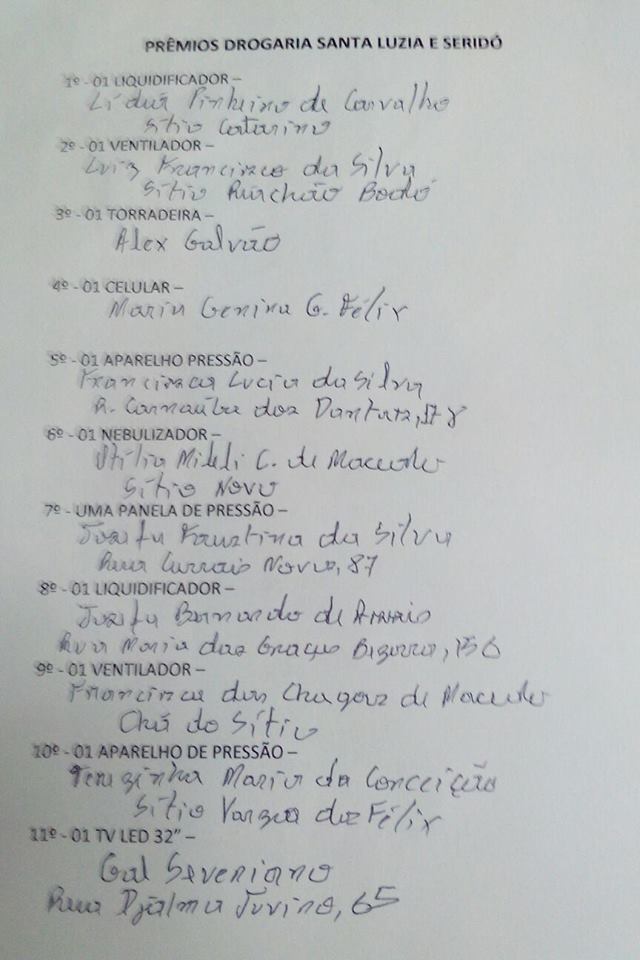 PRÊMIOS DROGARIA SANTA LUZIA E SERIDÓ
1º - 01 LIQUIDIFICADOR –
Pinheiro de Carvalho
Sítio Catarino
2º - 01 VENTILADOR –
Luiz Francisco da Silva
Sítio Riachão Bodó
3º - 01 TORRADEIRA –
Alex Galvão
4º - 01 CELULAR –
Maria Genina G. Félix
5º - 01 APARELHO PRESSÃO –
Francisca Lucia da Silva
R. Carnaúba dos Dantas,
6º - 01 NEBULIZADOR –
C. de Macedo
Sítio Novo
7º - UMA PANELA DE PRESSÃO –
Josefa Faustina da Silva
Rua Currais Novos, 87
8º - 01 LIQUIDIFICADOR –
Josefa Bernardo de Araujo
Rua Maria das Graças Bizerra,
9º - 01 VENTILADOR –
Francisca das Chagas de Macedo
Chã do Sítio
10º - 01 APARELHO DE PRESSÃO –
Terezinha Maria da Conceição
Sítio Vargea do Félix
11º - 01 TV LED 32” –
Gal Severiano
Rua Djalma Juvino, 65